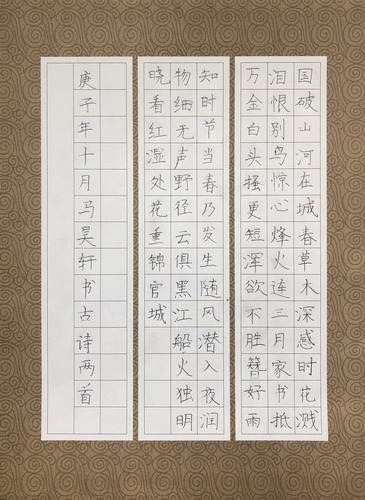 国破山河在城春草木深感时花溅
泪恨别鸟惊心烽火连三月家书抵
万金白头搔更短浑欲不胜簪好雨
知时节当春乃发生随风潜入夜润
物细无声野径云俱黑江船火独明
晓看红湿处花重锦官城
庚子年十月马昊轩书古诗两首